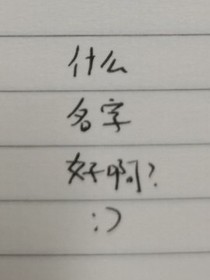 什么
名字
好啊?
:)